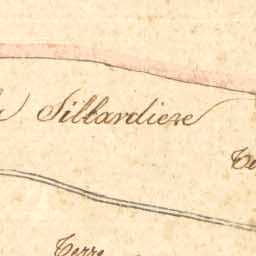 Sillardiere
Terre